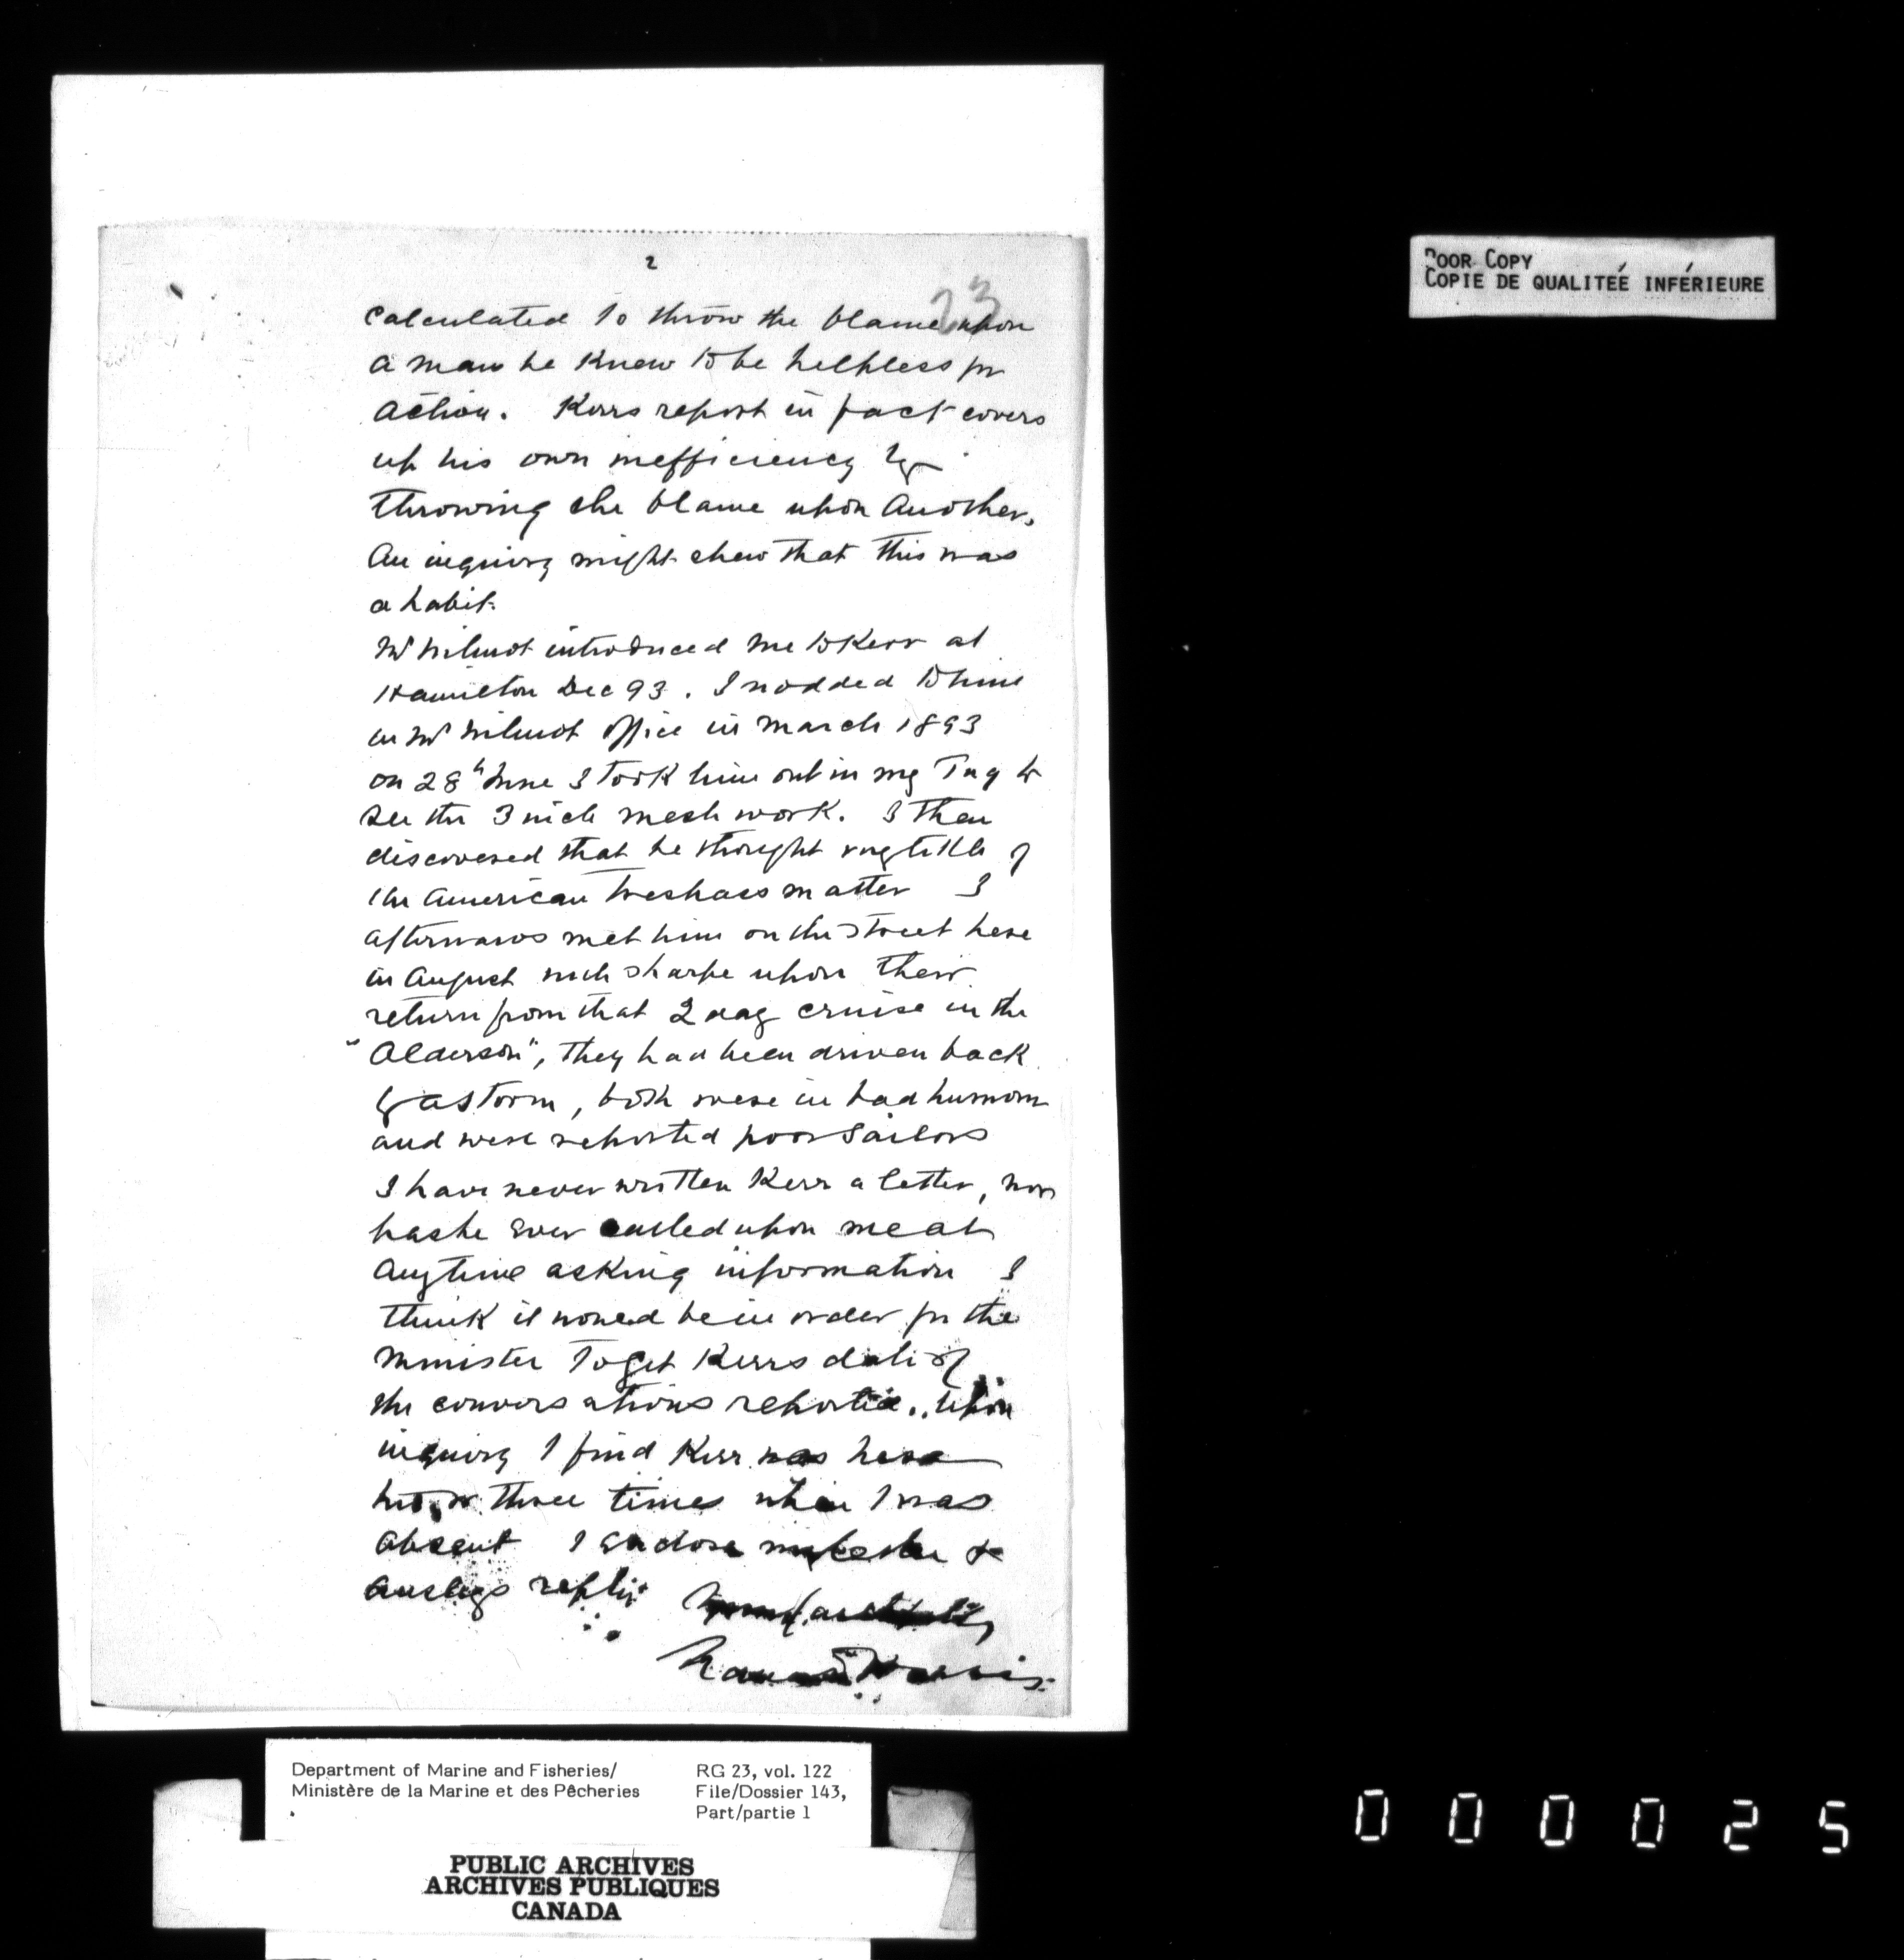 2
23
calculated to throw the blame upon
a man he knew to be helpless for
action. Kerrs report in fact covers
up his own inefficiency by
throwing the blame upon another.
An inquiry might shew that this was
a habit.
Mr Wilmot introduced me to Kerr at
Hamilton Dec 93. I nodded to him
in Mr Wilmot office in March 1893
on 28th June I took him out in my Tug to
see the 3 inch mesh work. I then
discovered that he thought very little of
the American trespass matter I
afterwards met him on the street here
in August with Sharpe upon their
return from that 2 day cruise in the
"Alderson", they had been driven back
by a storm, both were in bad humour
and were reported poor sailors
I have never written Kerr a letter, nor
has he ever called upon me at
anytime asking information I
think it would be in order for the
Minister to get Kerrs date of
the conversations reported. Upon
inquiry I find Kerr was here
two or three times when I was
absent I enclose &
replies
POOR COPY
COPIE DE QUALITÉE INFÉRIEURE
Department of Marine and Fisheries/
Ministère de la Marine et des Pêcheries
RG 23, vol. 122
File/Dossier 143,
Part/partie 1
PUBLIC ARCHIVES
ARCHIVES PUBLIQUES
CANADA
000025